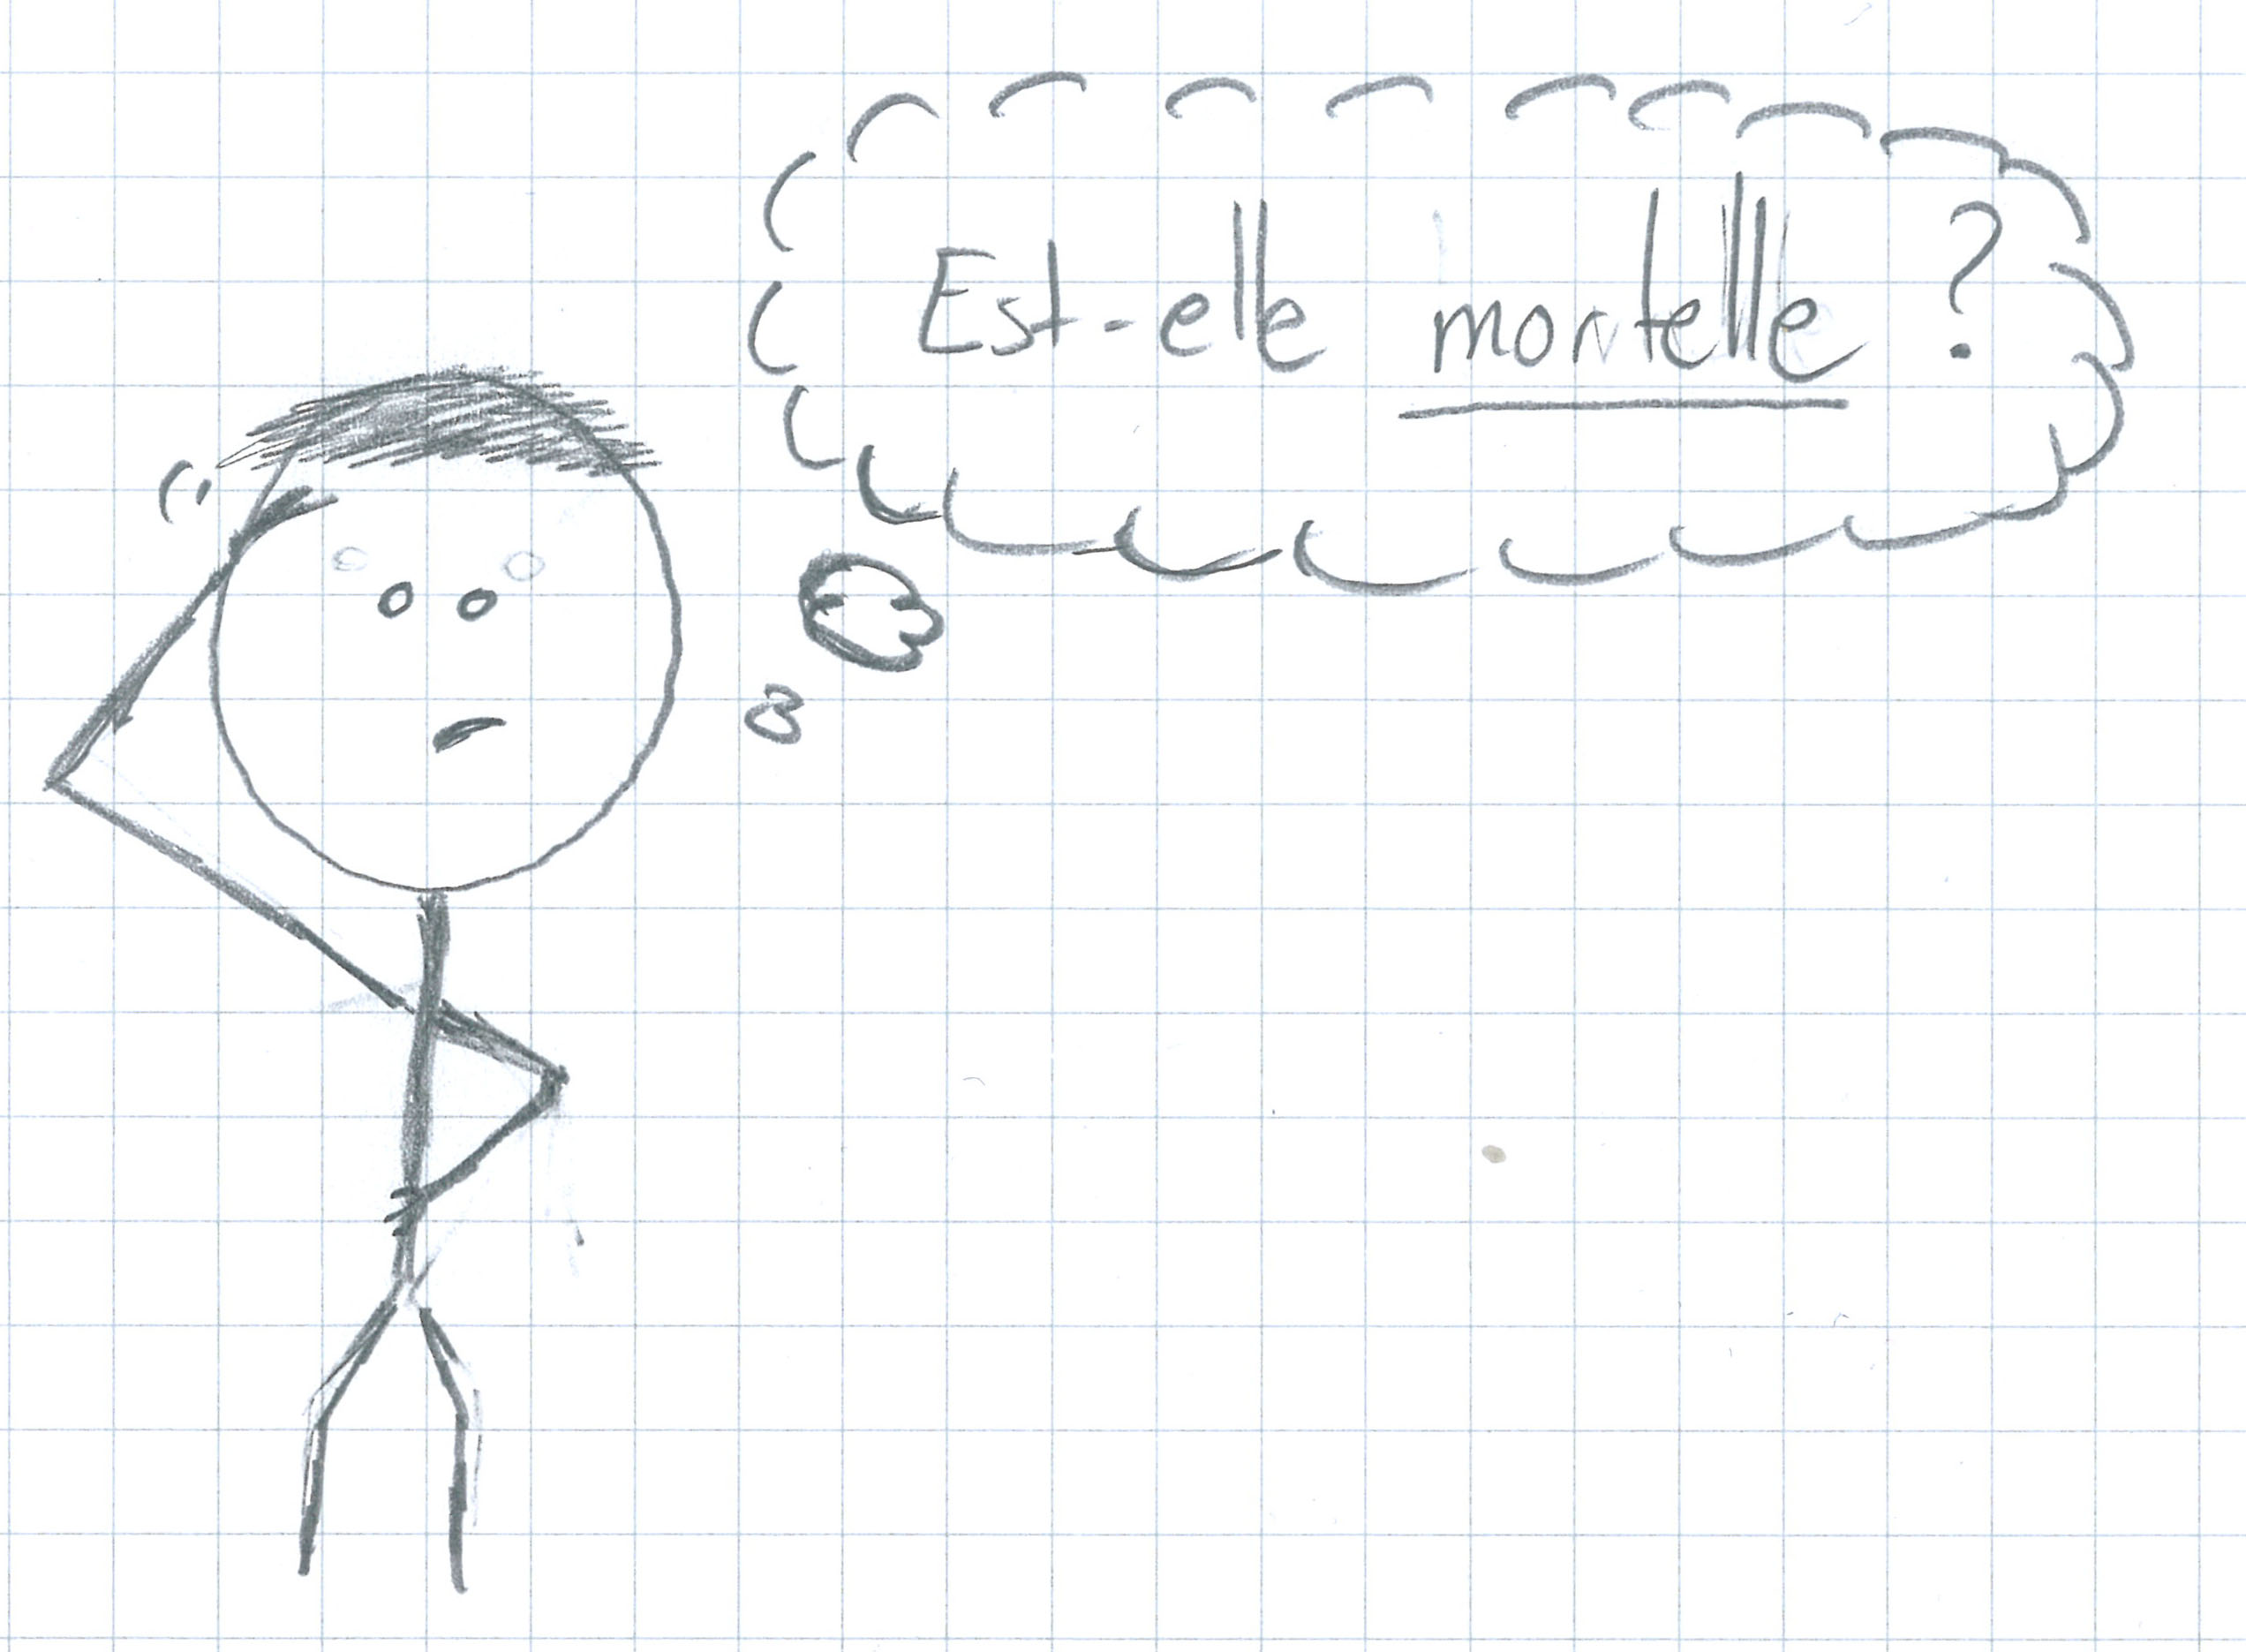 Est-elle mortelle ?